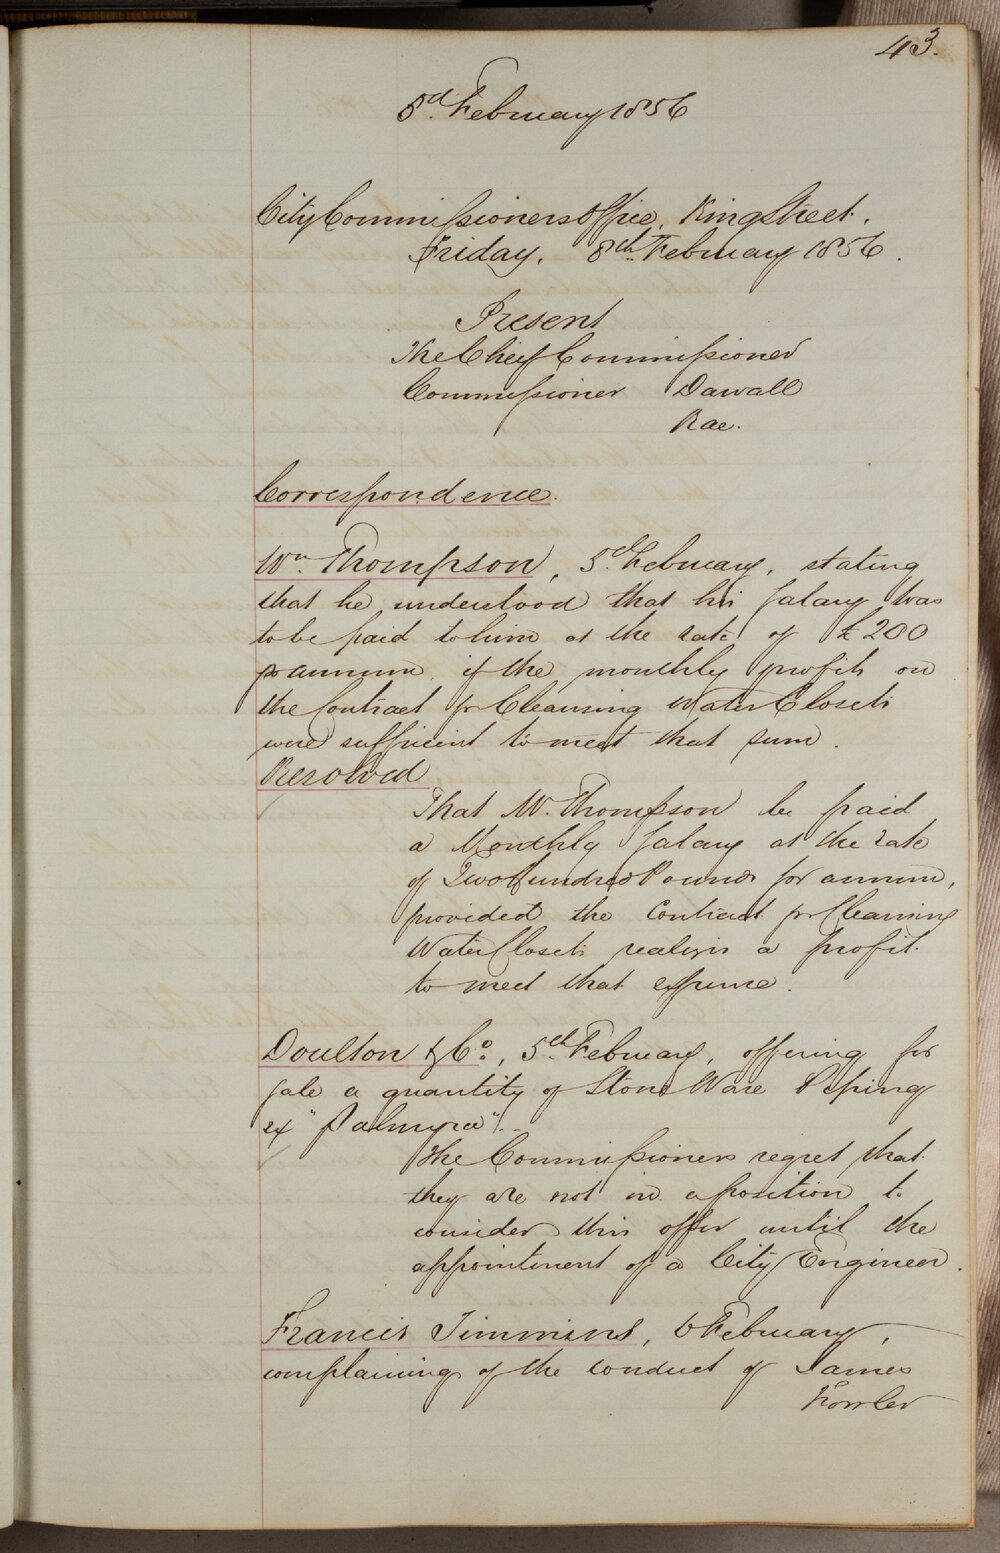 43.
8th February 1856
City Commissioners Office, King Street.
Friday, 8th February 1856.
Present
The Chief Commissioner
Commissioner Darvall
Rae.
Correspondence.
Wm. Thompson, 5th February, stating
that he understood that his salary was
to be paid to him at the rate of £200
pr annum if the monthly profits on
the Contract for Cleansing Water Closets
were sufficient to meet that sum.
Resolved
That Mr. Thompson be paid
a Monthly Salary at the rate
of Two Hundred Pounds per annum,
provided the Contract for Cleansing
Water Closets realizes a profit
to meet that expense.
Doulton & Co., 5th February, offering for
sale a quantity of Stone Ware Piping
ex "Palmyra".
The Commissioners regret that
they are not in a position to
consider this offer until the
appointment of a City Engineer.
Francis Timmins, 6 February,
complaining of the conduct of James
Fowler